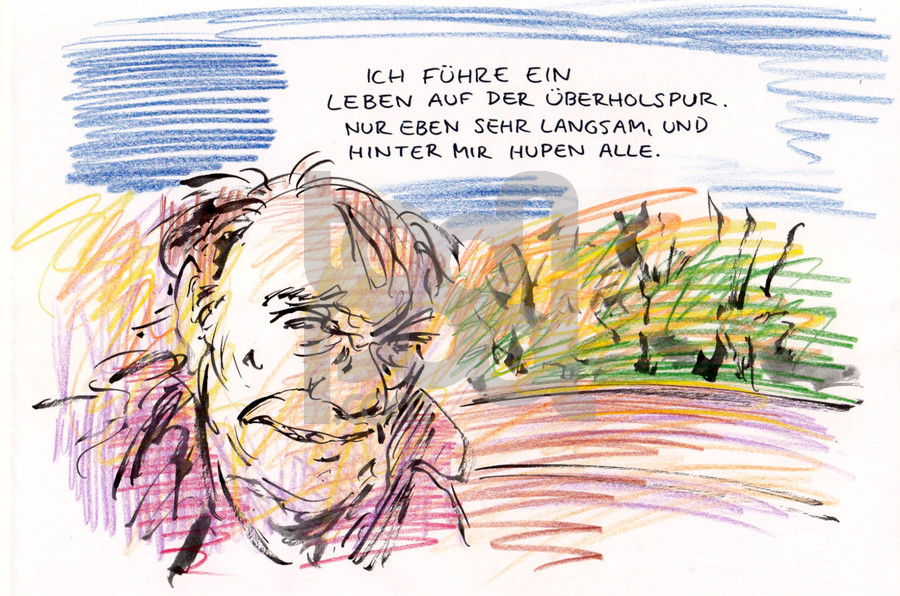 ICH FÜHRE EIN
LEBEN AUF DER ÜBERHOLSPUR.
NUR EBEN SEHR LANGSAM, UND
HINTER MIR HUPEN ALLE.